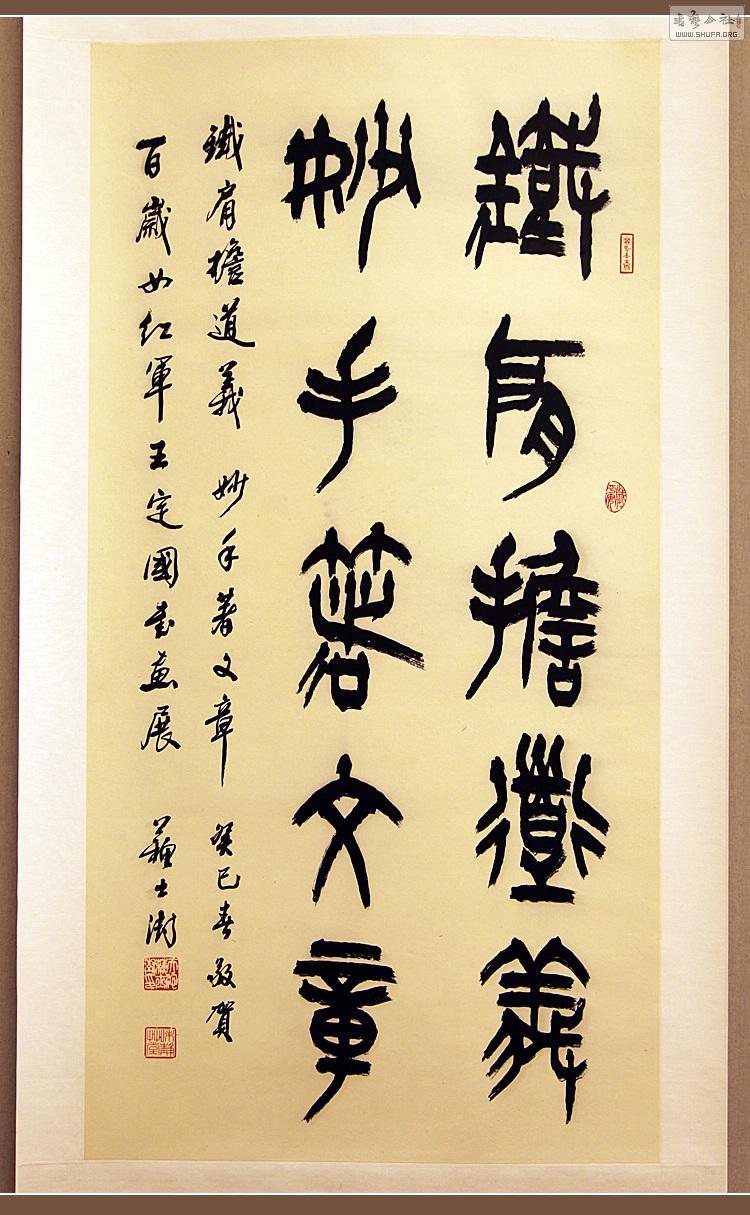 鐵肩擔道義
妙手著文章
鐵肩擔道義 妙手著文章 癸巳春敬賀
百歲女紅軍王定國書畫展 蘇士澍
书艺公社
WWW.SHUFA.ORG